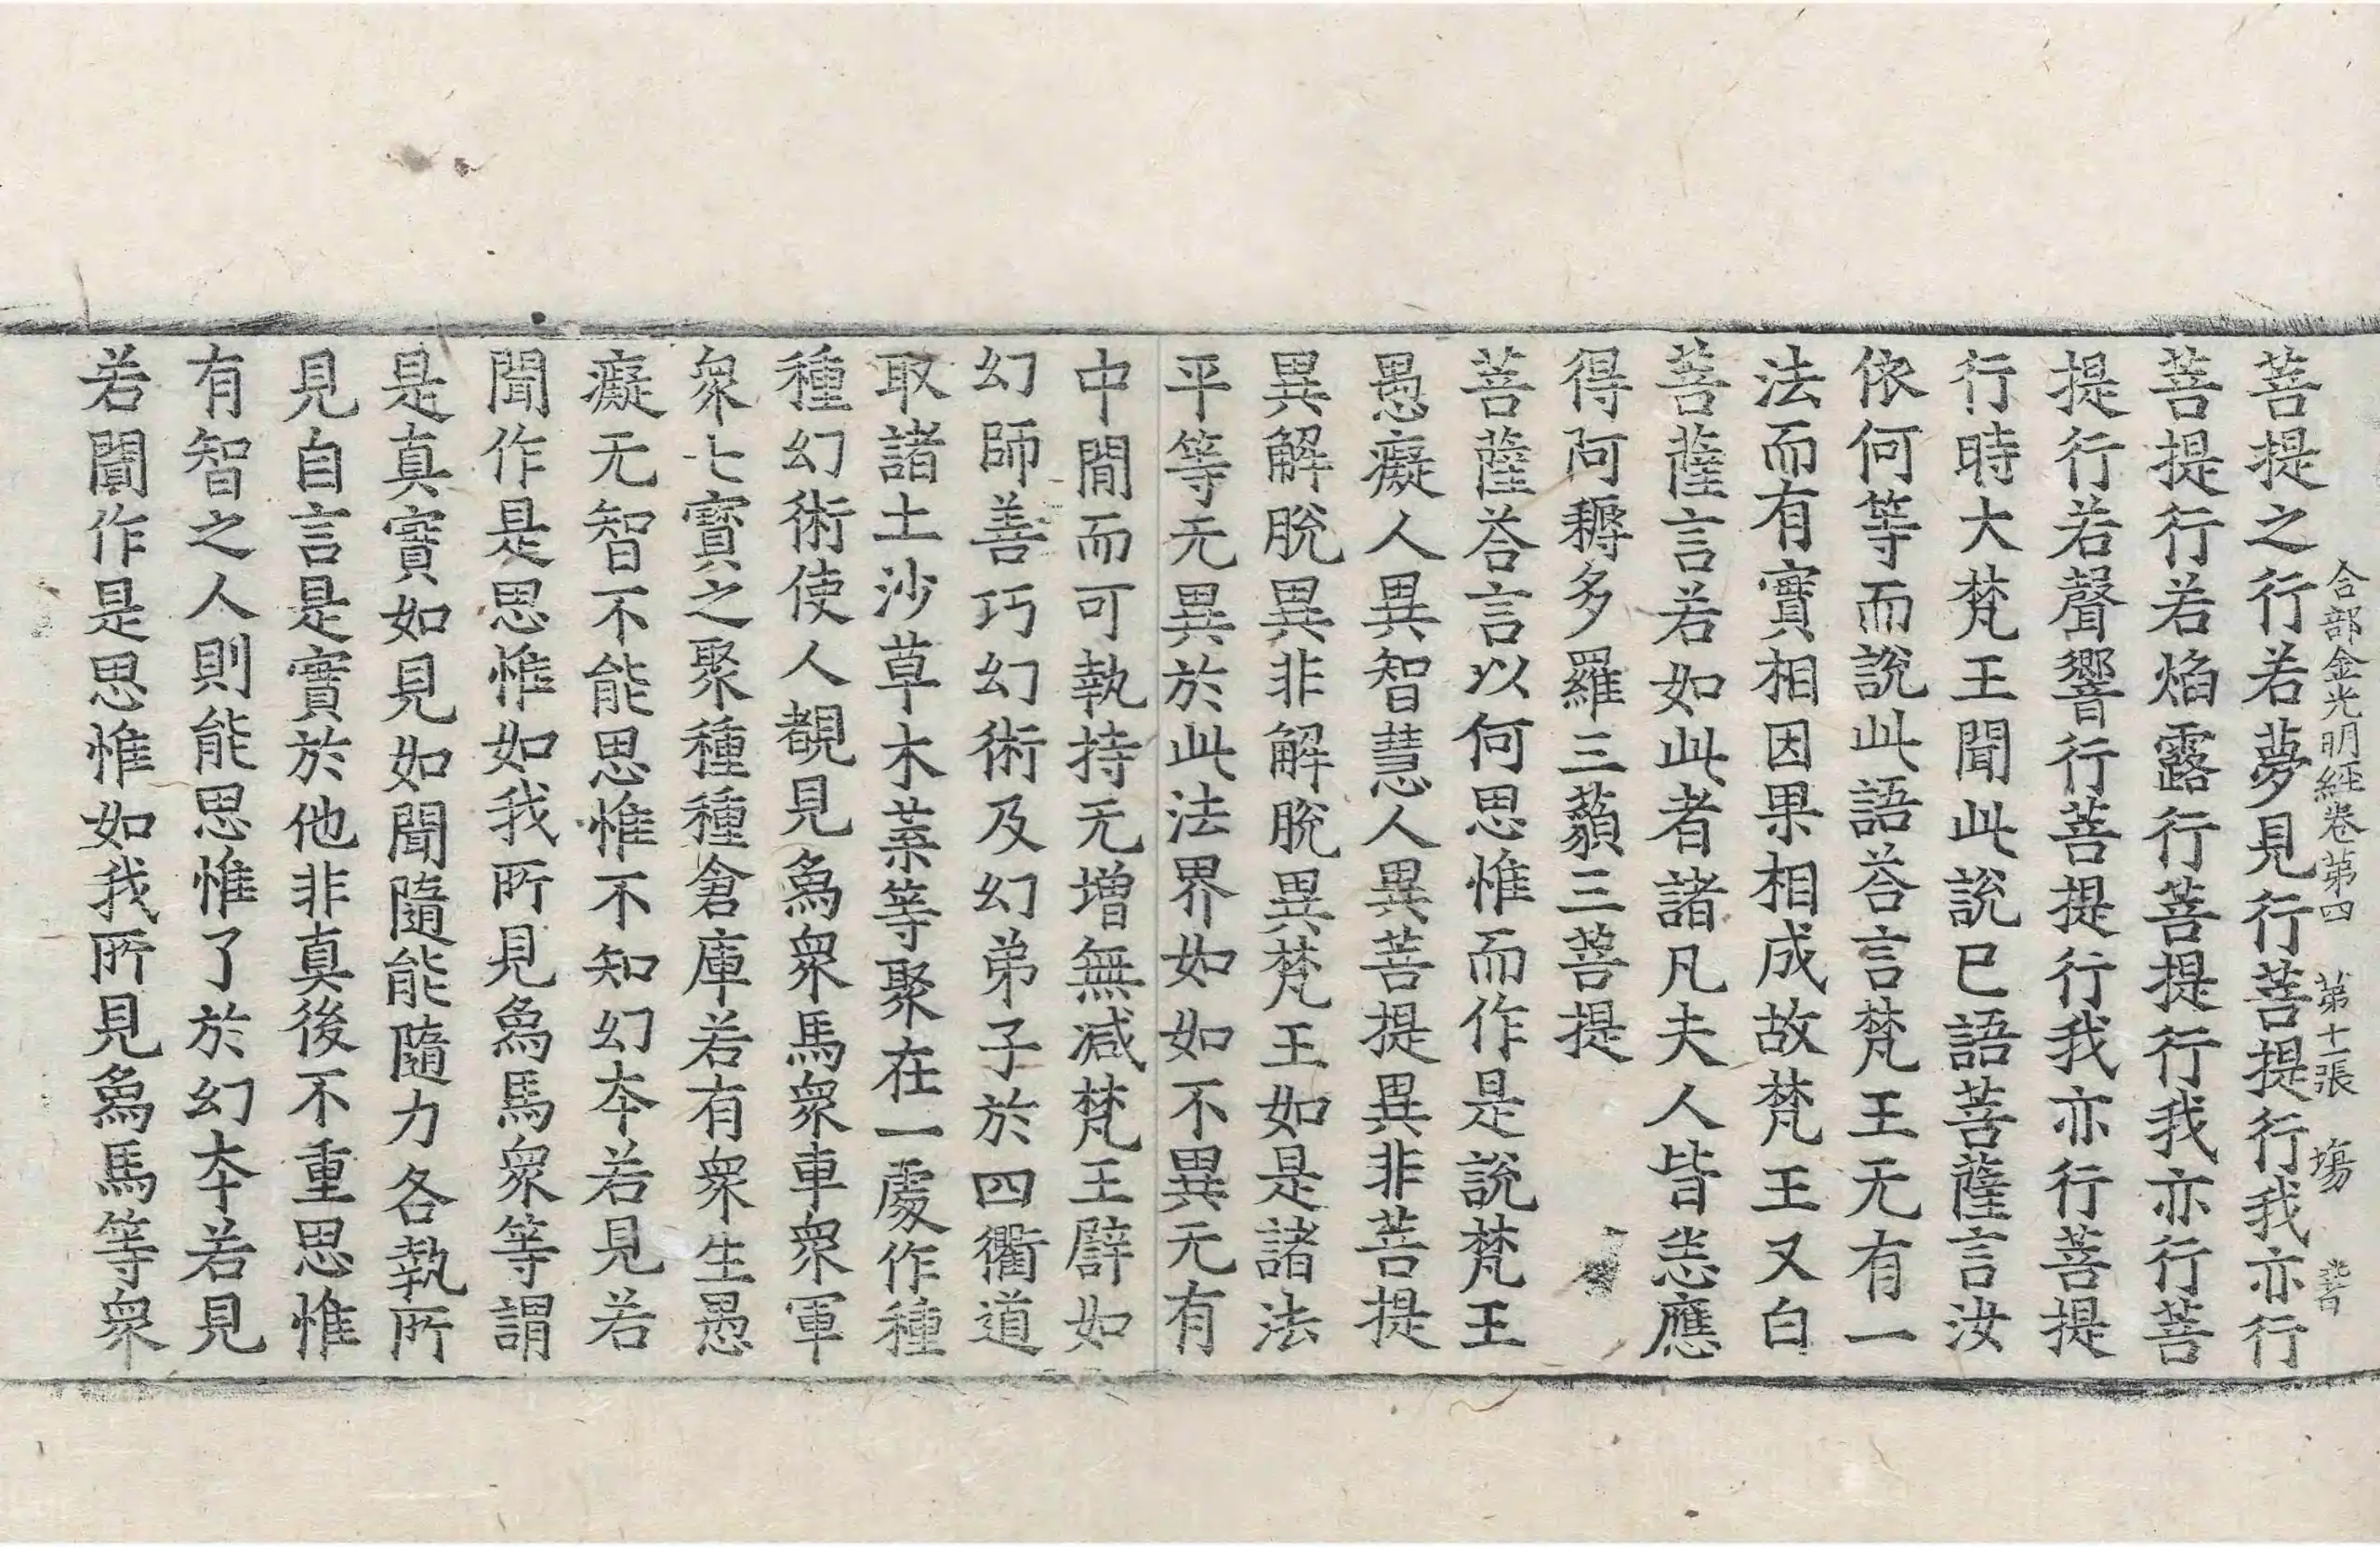 合部金光明經卷第四 第十一張 場
菩提之行若夢見行菩提行我亦行
菩提行若焰露行菩提行我亦行菩
提行若聲響行菩提行我亦行菩提
行時大梵王聞此說已語菩薩言汝
依何等而說此語荅言梵王无有一
法而有實相因果相成故梵王又白
菩薩言若如此者諸凡夫人皆悉應
得阿耨多羅三藐三菩提
菩薩荅言以何思惟而作是說梵王
愚癡人異智慧人異菩提異非菩提
異解脫異非解脫異梵王如是諸法
平等无異於此法界如如不異无有
中間而可執持无增無減梵王譬如
幻師善巧幻術及幻弟子於四衢道
取諸土沙草木葉等聚在一處作種
種幻術使人覩見象衆馬衆車衆軍
衆七寶之聚種種倉庫若有衆生愚
癡无智不能思惟不知幻夲若見若
聞作是思惟如我所見象馬衆等謂
是真實如見如聞隨能隨力各執所
見自言是實於他非真後不重思惟
有智之人則能思惟了於幻夲若見
若聞作是思惟如我所見象馬等衆